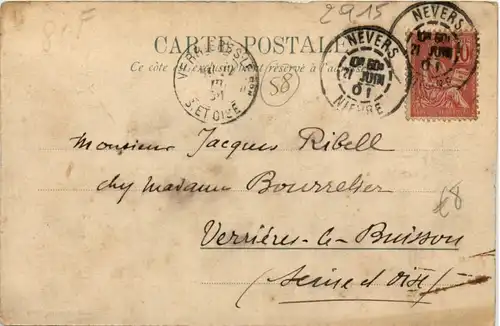 8 F
2915
CARTE POSTALE
Ce côté est exclusivement réservé à l'adresse
NEVERS
21 JUIN
01
NIEVRE
NEVERS
21 JUIN
01
S. ET OISE
58
10
Monsieur Jacques Ribell
chez Madame Bourrelier
Verrières-le-Buisson
(Seine et Oise)
€8